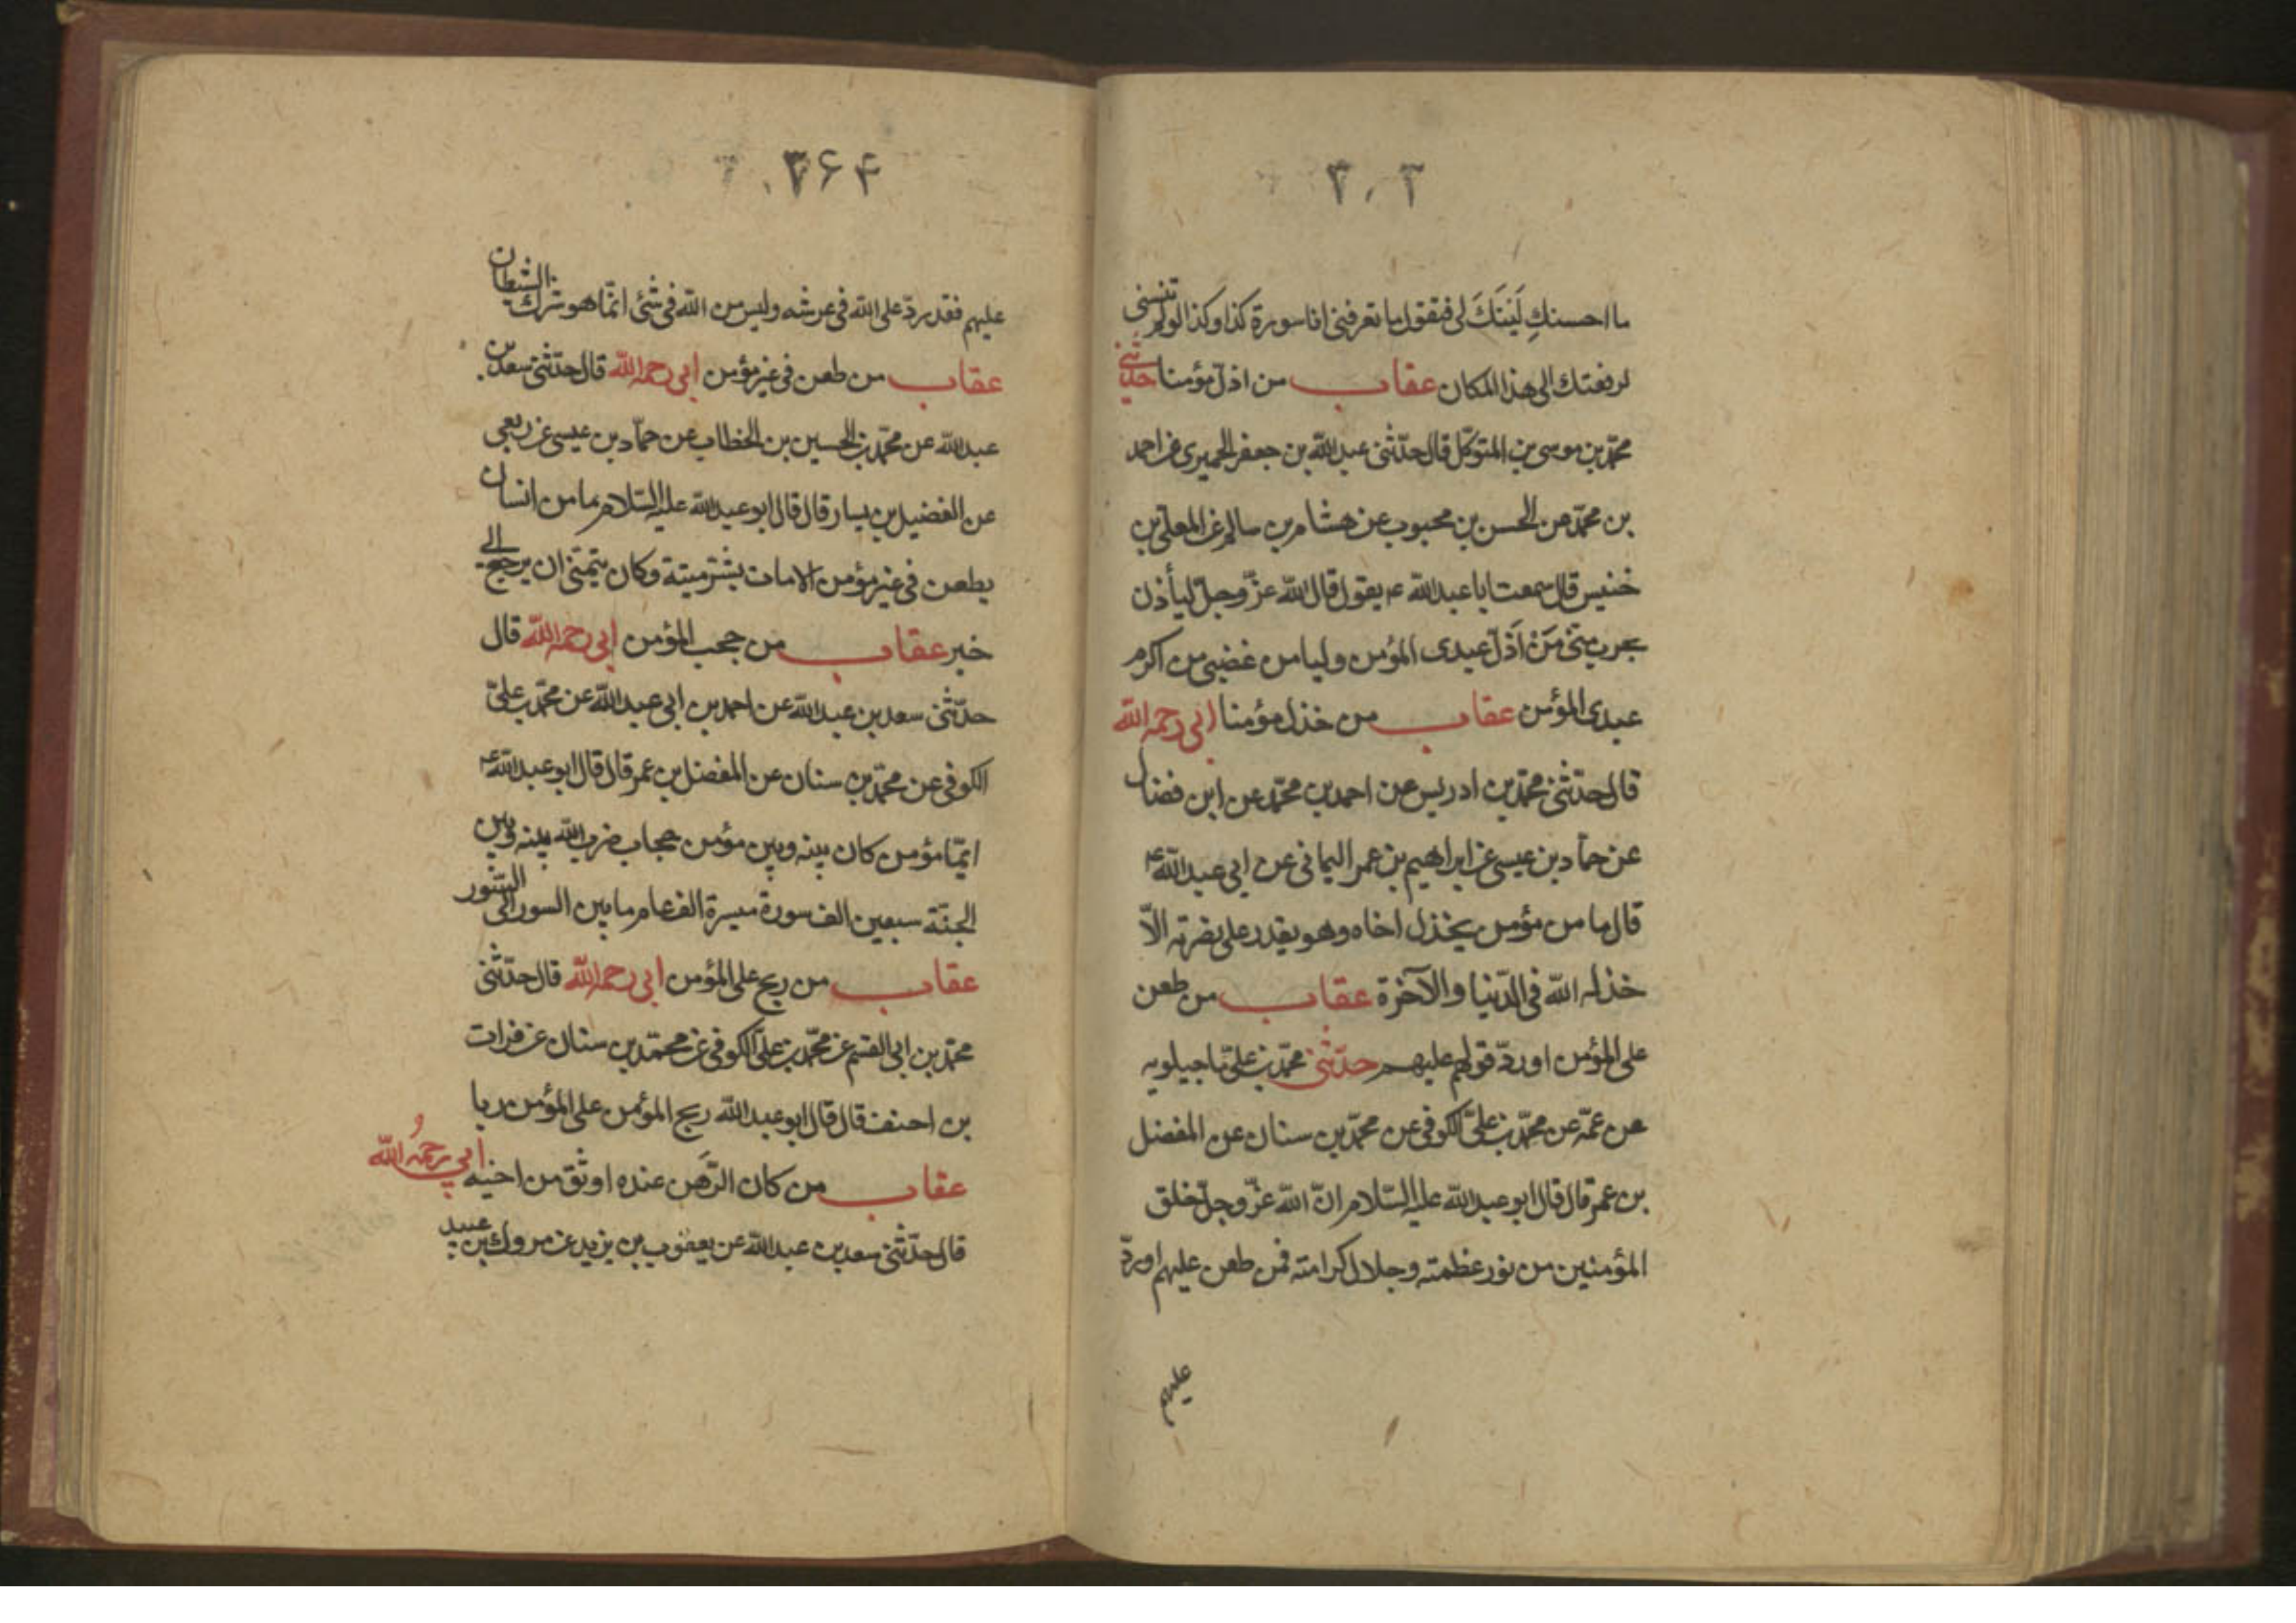 ٣٠٣
ما احسنكِ لَيْتَكَ لى فيقول ما تعرفنى انا سورة كذا وكذا لو لم تنسنى
لرفعتك الى هذا المكان عقاب من اذلّ مؤمنا حدّثنى
محمّد بن موسى بن المتوكّل قال حدّثنى عبد اللّه بن جعفر الحميرى عن احمد
بن محمّد عن الحسن بن محبوب عن هشام بن سالم عن المعلّى بن
خنيس قال سمعت ابا عبد اللّه ع يقول قال اللّه عزّ وجلّ ليأذن
بحرب منّى مَنْ اَذَلّ عبدى المؤمن وليامن غضبى من اكرم
عبدى المؤمن عقاب من خذل مؤمنا ابى رحمه اللّه
قال حدّثنى محمّد بن ادريس عن احمد بن محمّد عن ابن فضال
عن حمّاد بن عيسى عن ابراهيم بن عمر اليمانى عن ابى عبد اللّه ع
قال ما من مؤمن يخذل اخاه وهو يقدر على نصرته الاّ
خذله اللّه فى الدّنيا والآخرة عقاب من طعن
على المؤمن او ردّ قولهم عليهم حدّثنى محمّد بن علىّ ماجيلويه
عن عمّه عن محمّد بن علىّ الكوفى عن محمّد بن سنان عن المفضل
بن عمر قال قال ابو عبد اللّه عليه السّلام انّ اللّه عزّ وجلّ خلق
المؤمنين من نور عظمته وجلال كرامته فمن طعن عليهم او ردّ
عليهم
٣۶۴
عليهم فقد ردّ على اللّه فى عرشه وليس من اللّه فى شئ انّما هو شرك الشيطان
عقاب من طعن فى عين مؤمن ابى رحمه اللّه قال حدّثنى سعد بن
عبد اللّه عن محمّد بن الحسين بن الخطاب عن حمّاد بن عيسى عن ربعى
عن الفضيل بن يسار قال قال ابو عبد اللّه عليه السّلام ما من انسان
يطعن فى عين مؤمن الا مات بشرّ ميتة وكان يتمنّى ان يرجع الى
خير عقاب من حجب المؤمن ابى رحمه اللّه قال
حدّثنى سعد بن عبد اللّه عن احمد بن ابى عبد اللّه عن محمّد بن علىّ
الكوفى عن محمّد بن سنان عن المفضل بن عمر قال قال ابو عبد اللّه ع
ايّما مؤمن كان بينه وبين مؤمن حجاب ضرب اللّه بينه وبين
الجنّة سبعين الف سورة مسيرة الف عام ما بين السور الى السّور
عقاب من ربح على المؤمن ابى رحمه اللّه قال حدّثنى
محمّد بن ابى القسم عن محمّد بن علىّ الكوفى عن محمّد بن سنان عن فرات
بن احنف قال قال ابو عبد اللّه ربح المؤمن على المؤمن ربا
عقاب من كان الرّهَن عنده اوثق من اخيه ابى رحمهُ اللّه
قال حدّثنى سعد بن عبد اللّه عن يعقوب بن يزيد عن مروك بن عبيد